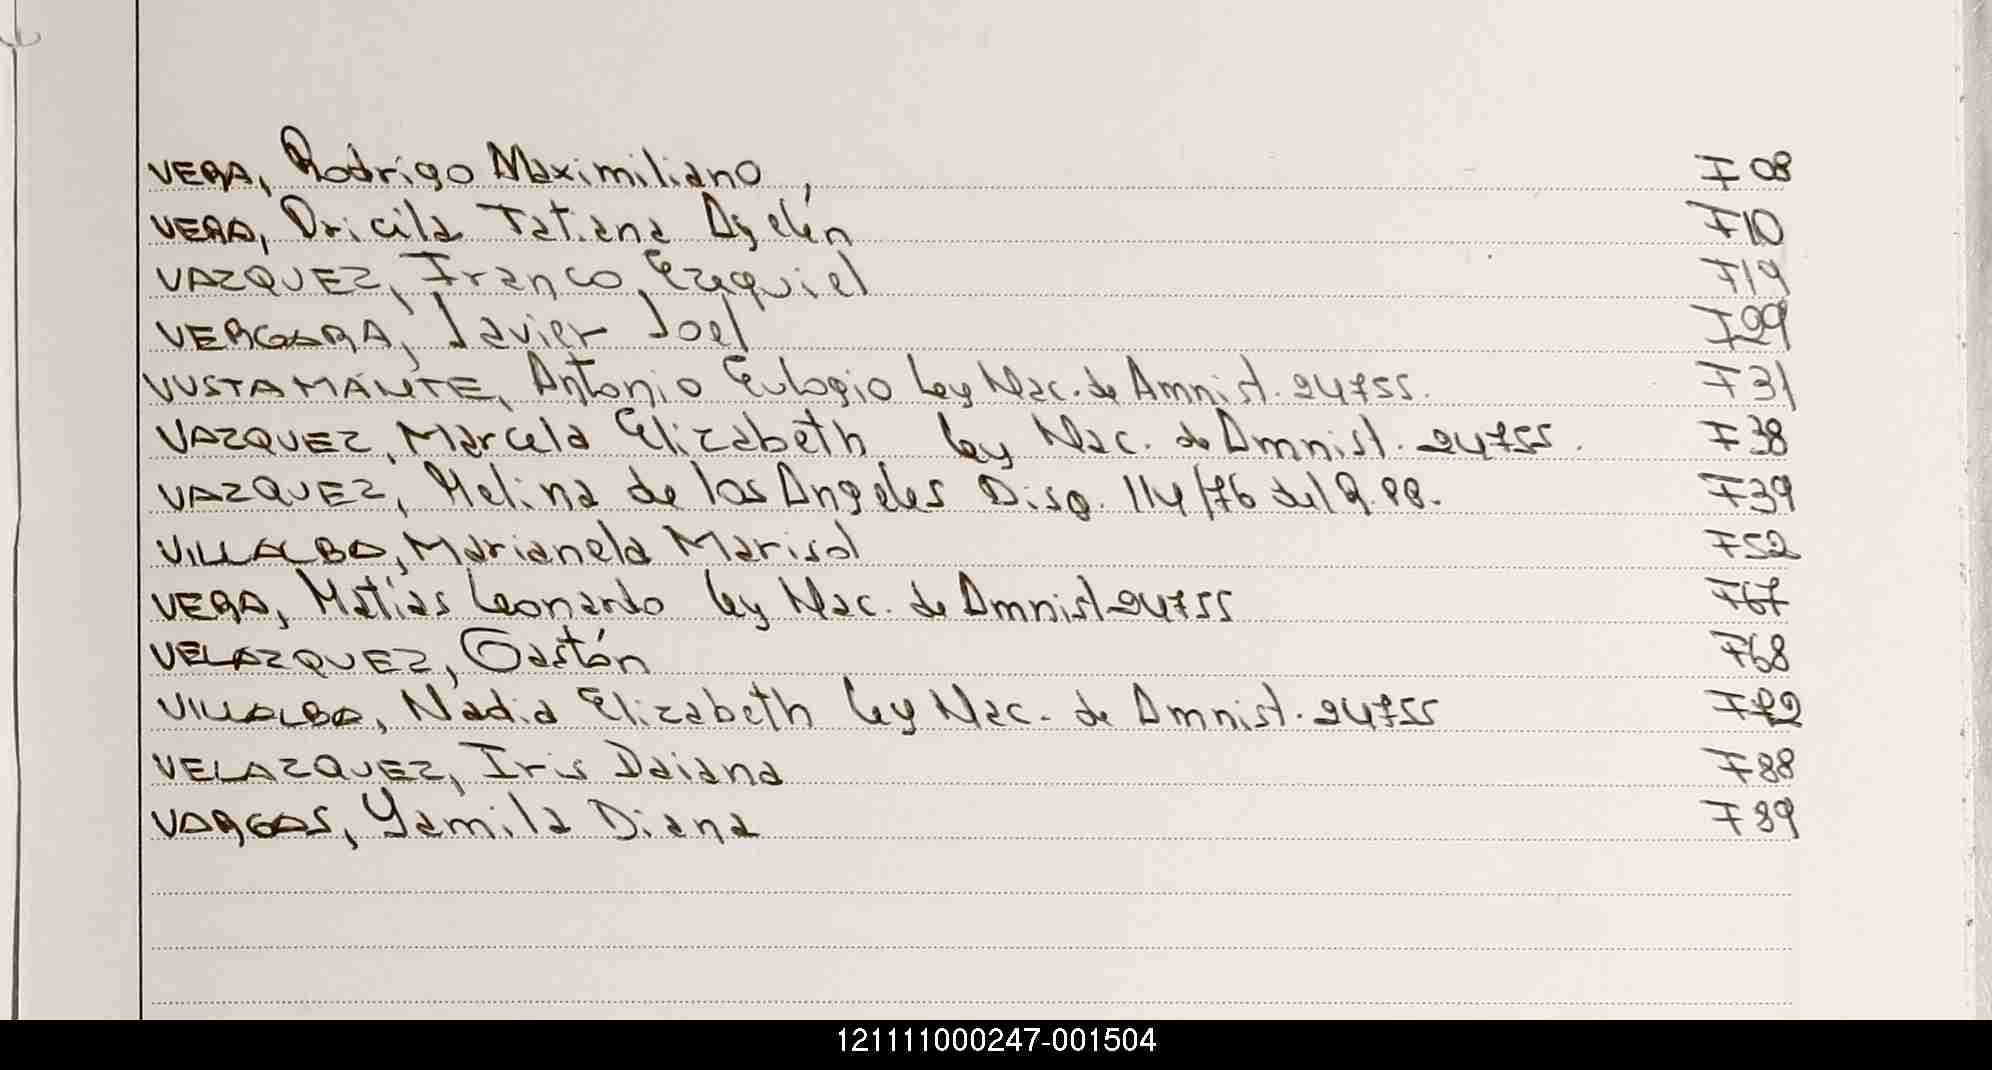 VERA, Rodrigo Maximiliano, F 08
VERA, Pricila Tatiana Ayelén F10
VAZQUEZ, Franco Ezequiel F19
VERGARA, Javier Joel F29
VUSTAMANTE, Antonio Eulogio Ley Nac. de Amnist. 24755. F31
VAZQUEZ, Marcela Elizabeth Ley Nac. de Amnist. 24755. F38
VAZQUEZ, Melina de los Angeles Disp. 114/76 del R.PP. F39
VILLALBA, Marianela Marisol F52
VERA, Matias Leonardo Ley Nac. de Amnist 24755 F67
VELAZQUEZ, Gastón F68
VILLALBA, Nadia Elizabeth Ley Nac. de Amnist. 24755 F72
VELAZQUEZ, Iris Daiana F88
VARGAS, Yamila Diana F89
121111000247-001504